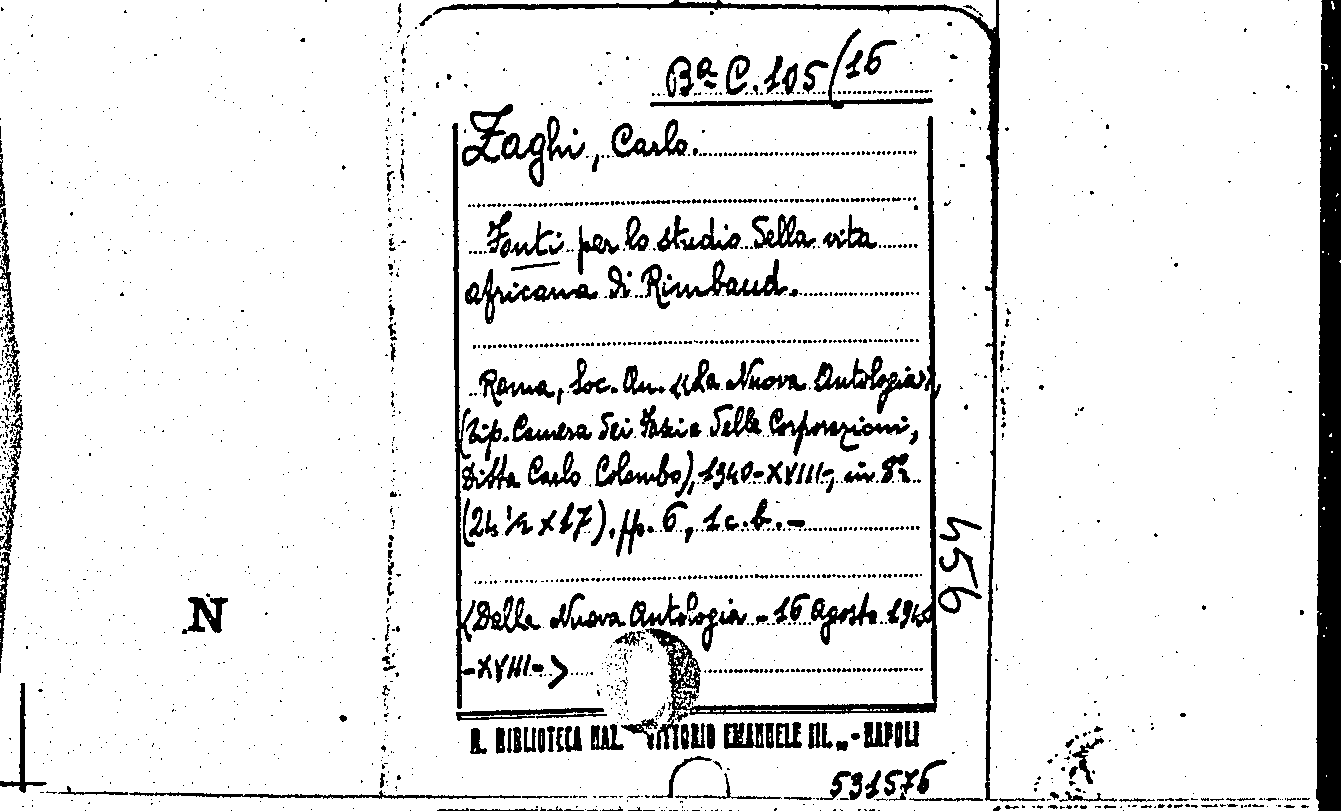 Bª C. 105/16
Zaghi, Carlo.
Fonti per lo studio della vita
africana di Rimbaud.
Roma, Soc. An. «La Nuova Antologia»,
(Tip. Camera dei Fasci e delle Corporazioni,
Ditta Carlo Colombo), 1940-XVIII-, in 8º
(24 ½ x 17). pp. 6, 1 c. b. -
456
<Dalla Nuova Antologia - 16 Agosto 1940
-XVIII->
N
R. BIBLIOTECA NAZ. VITTORIO EMANUELE III. „ - NAPOLI
531576